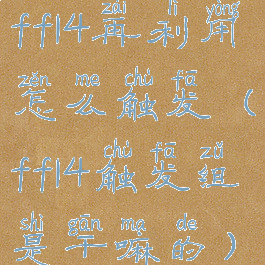 zài lì yòng
ff14再利用
zěn me chù fā
怎么触发（
chù fā zǔ
ff14触发组
shì gān ma de
是干嘛的）